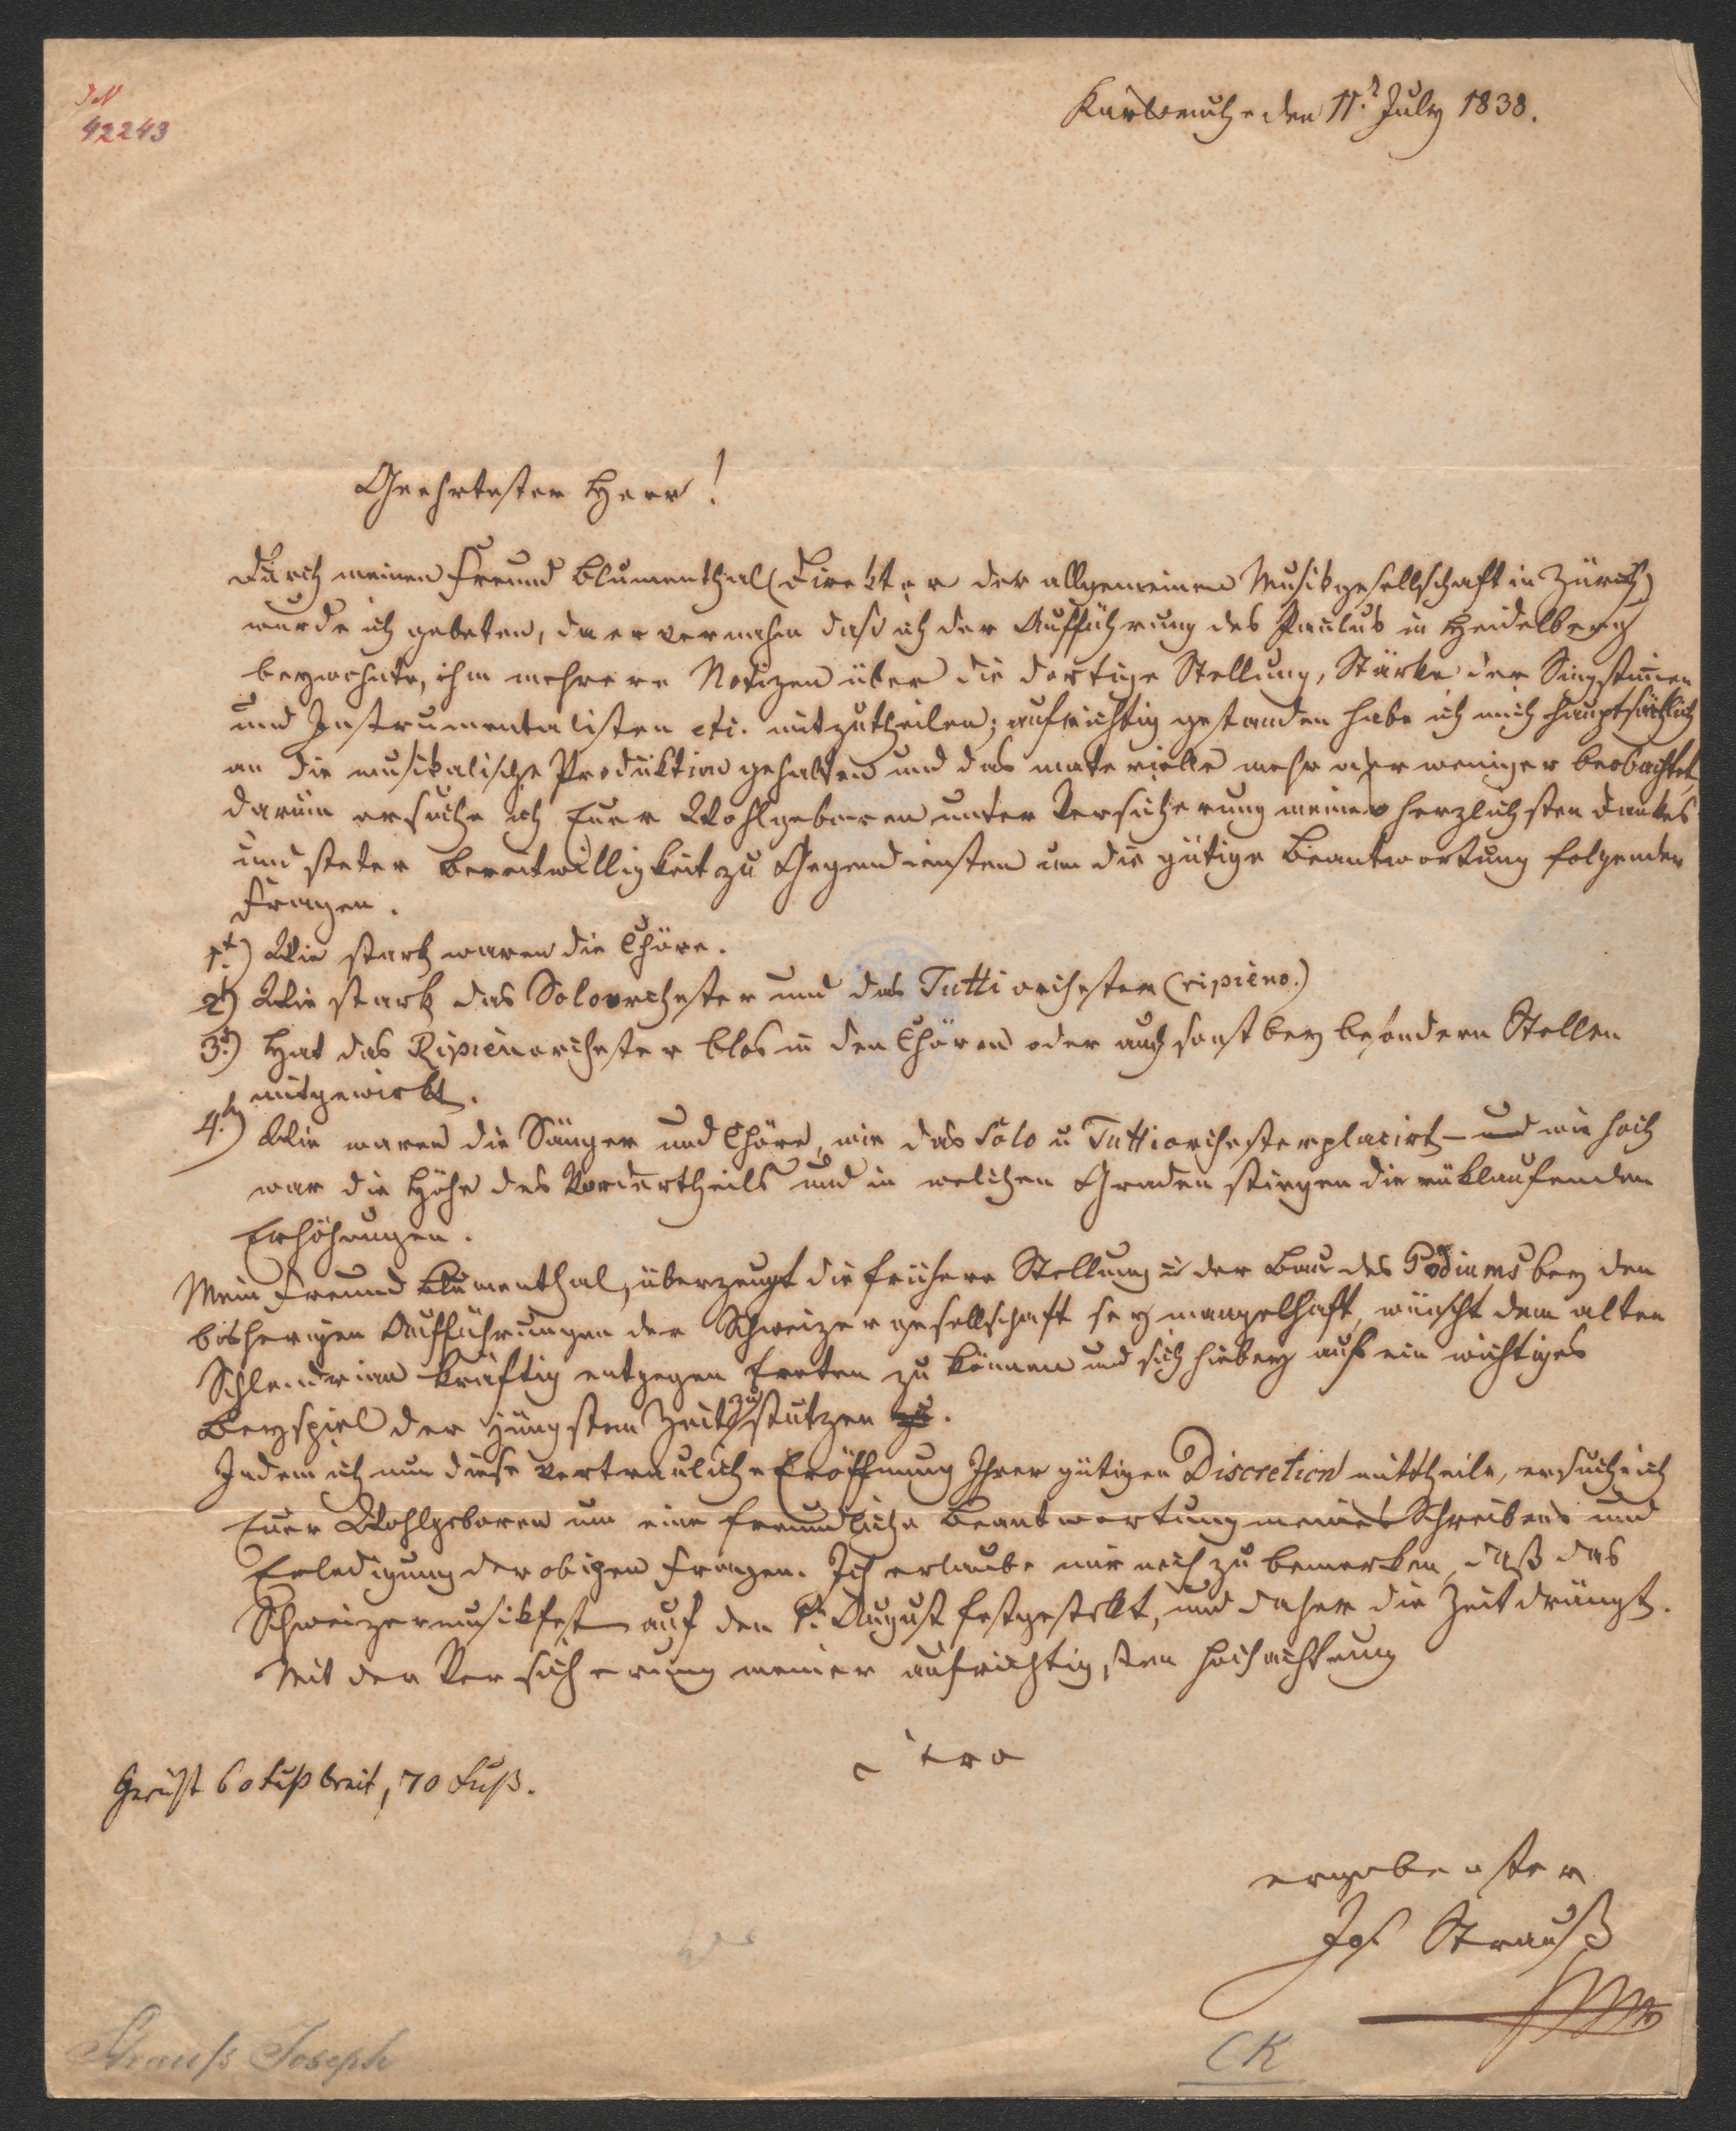 JN
42243
Karlsruhe den 11t July 1838.
Geehrtester Herr!
Durch meinen Freund Blumenthal (Direktor der allgemeinen Musikgesellschaft in Zürich)
wurde ich gebeten, da er vernahm daß ich der Aufführung des Paulus in Heidelberg
beywohnte, ihm mehrere Notizen über die dortige Stellung, Stärke der Singstimen
und Instrumentalisten etc. mitzutheilen; aufrichtig gestanden habe ich mich hauptsächlich
an die musikalische Produktion gehalten und das materielle mehr oder weniger beobachtet,
darum ersuche ich Euer Wohlgeboren unter Versicherung meines herzlichsten Dankes
und steter Bereitwilligkeit zu Gegendiensten um die gütige Beantwortung folgender
Fragen.
1t) Wie stark waren die Chöre.
2t) Wie stark das Soloorchester und das Tutti orchester (ripieno.)
3t) Hat das Ripienorchester blos in den Chören oder auch sonst bey besondern Stellen
mitgewirkt.
4t) Wie waren die Sänger und Chöre, wie das Solo u Tuttiorchester placirt – und wie hoch
war die Höhe des Vordertheils und in welchen Graden stiegen die rüklaufenden
Erhöhungen.
Mein Freund Blumenthal, überzeugt die frühere Stellung u der Bau des Podiums bey den
bisherigen Aufführungen der Schweizergesellschaft sey mangelhaft, wünscht dem alten
Schlendrian kräftig entgegen treten zu können und sich hiebey auf ein wichtiges
Beyspiel der jüngsten Zeit zu stützen zu.
Indem ich nun diese vertrauliche Eröffnung Ihrer gütigen Discretion mittheile, ersuche ich
Euer Wohlgeboren um eine freundliche Beantwortung meines Schreibens und
Erledigung der obigen Fragen. Ich erlaube mir noch zu bemerken, daß das
Schweizermusikfest auf den 1t August festgestellt, und daher die Zeit drängt.
Mit der Versicherung meiner aufrichtigsten Hochachtung
Gerüst 60 Fuß breit, 70 Fuß.
ergebenster
Jos Strauß
Strauss Joseph
CK